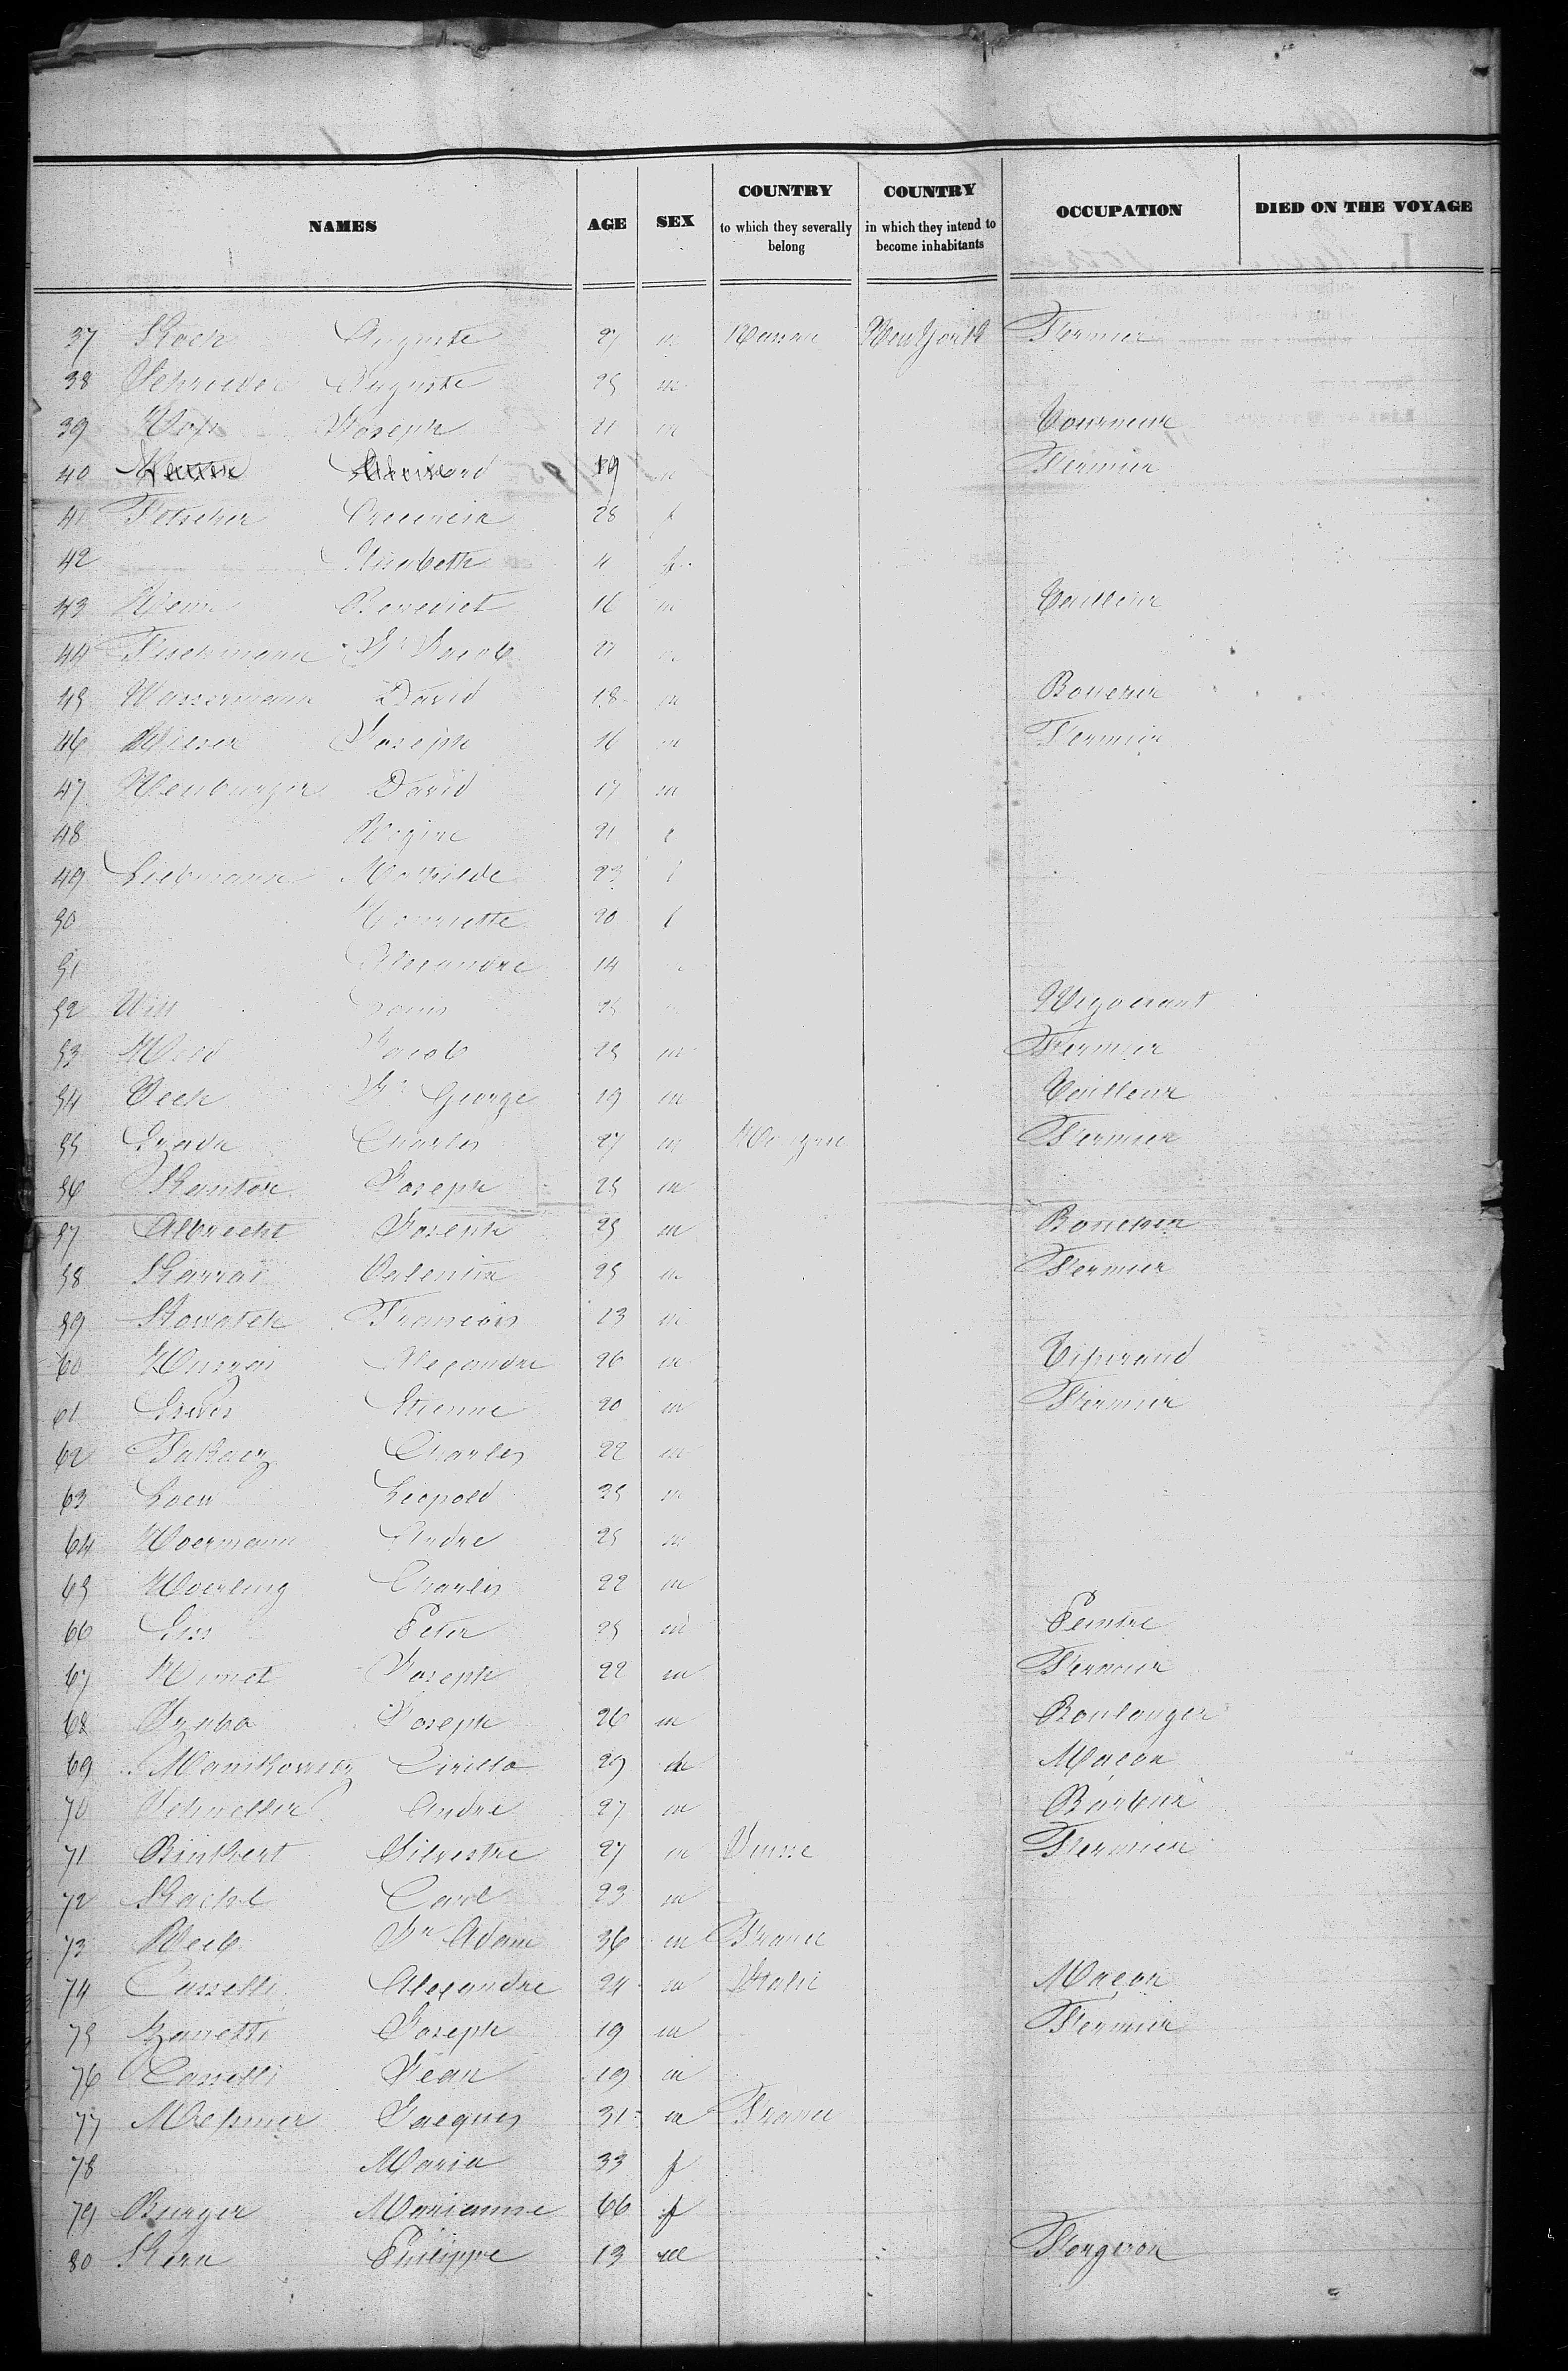 NAMES AGE SEX COUNTRY to which they severally belong COUNTRY in which they intend to become inhabitants OCCUPATION DIED ON THE VOYAGE
37 Koch Auguste 27 m New York Fermier
38 Schroeder Auguste 25 m
39 Joseph 21 m Tourneur
40 19 m Fermier
41 Fetscher Crecencia 28 f
42 Elisabeth 4 f
43 Benedict 16 m Tailleur
44 Fischmann Jn Jacob 27 m
45 Wassermann David 18 m Boucher
46 Wieser Joseph 16 m Fermier
47 Neuburger David 17 m
48 Regine 21 f
49 Liebmann Mathilde 23 f
50 Henriette 20 f
51 Alexandre 14
52 Will Louis 25 Negociant
53 Jacob 25 m Fermier
54 Beck Jn George 19 m Tailleur
55 Charles 27 m Hongrie Fermier
56 Kantor Joseph 25 m
57 Albrecht Joseph 25 m Boucher
58 Karrai Valentin 25 m Fermier
59 Kowatch Francois 13 m
60 Huszar Alexandre 26 m Tisserand
61 Etienne 20 m Fermier
62 Takacz Charles 22 m
63 Loew Leopold 35 m
64 Hoermann Andre 25 m
65 Hoerling Charles 22 m
66 Giss Peter 25 m Peintre
67 Nemet Joseph 22 m Fermier
68 Szabo Joseph 26 m Boulanger
69 Manikowsetz Cirillo 29 m Maçon
70 Schneller Andre 27 m Barbier
71 Binkert Silvestre 27 m Suisse Fermier
72 Rachel Carl 23 m
73 Weeb Jn Adam 36 m France
74 Casselli Alexandre 24 m Italie Maçon
75 Zanetti Joseph 19 m Fermier
76 Casselli Jean 19 m
77 Messmer Jacques 31 m France
78 Maria 33 f
79 Burger Marianne 66 f
80 Kern Philippe 13 m Forgeron